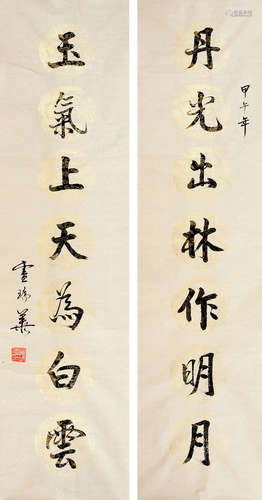 丹光出林作明月
甲午年
玉氣上天為白雲